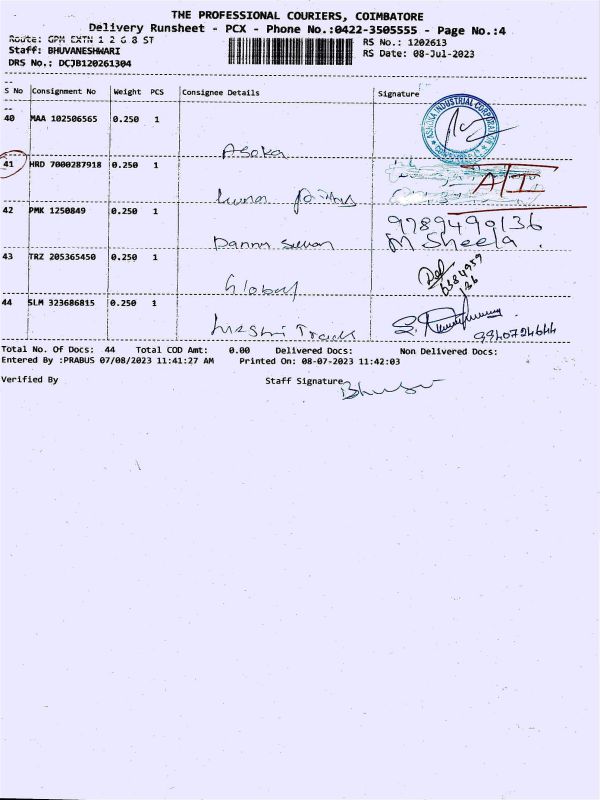 THE PROFESSIONAL COURIERS, COIMBATORE
Delivery Runsheet - PCX - Phone No.:0422-3505555 - Page No.:4
Route: GPM EXTN 1 2 6 8 ST
RS No.: 1202613
Staff: BHUVANESHWARI
RS Date: 08-Jul-2023
DRS No.: DCJB120261304
S No Consignment No Weight PCS Consignee Details Signature
40 MAA 102506565 0.250 1
ASHOKA INDUSTRIAL CORPORATION
Asoka
41 HRD 7000287918 0.250 1
A/I
42 PMK 1250849 0.250 1
9789499136
M Sheela.
43 TRZ 205365450 0.250 1
Global
Del
6384959
136
44 SLM 323686815 0.250 1
9940724644
Total No. Of Docs: 44 Total COD Amt: 0.00 Delivered Docs: Non Delivered Docs:
Entered By :PRABUS 07/08/2023 11:41:27 AM Printed On: 08-07-2023 11:42:03
Verified By Staff Signature